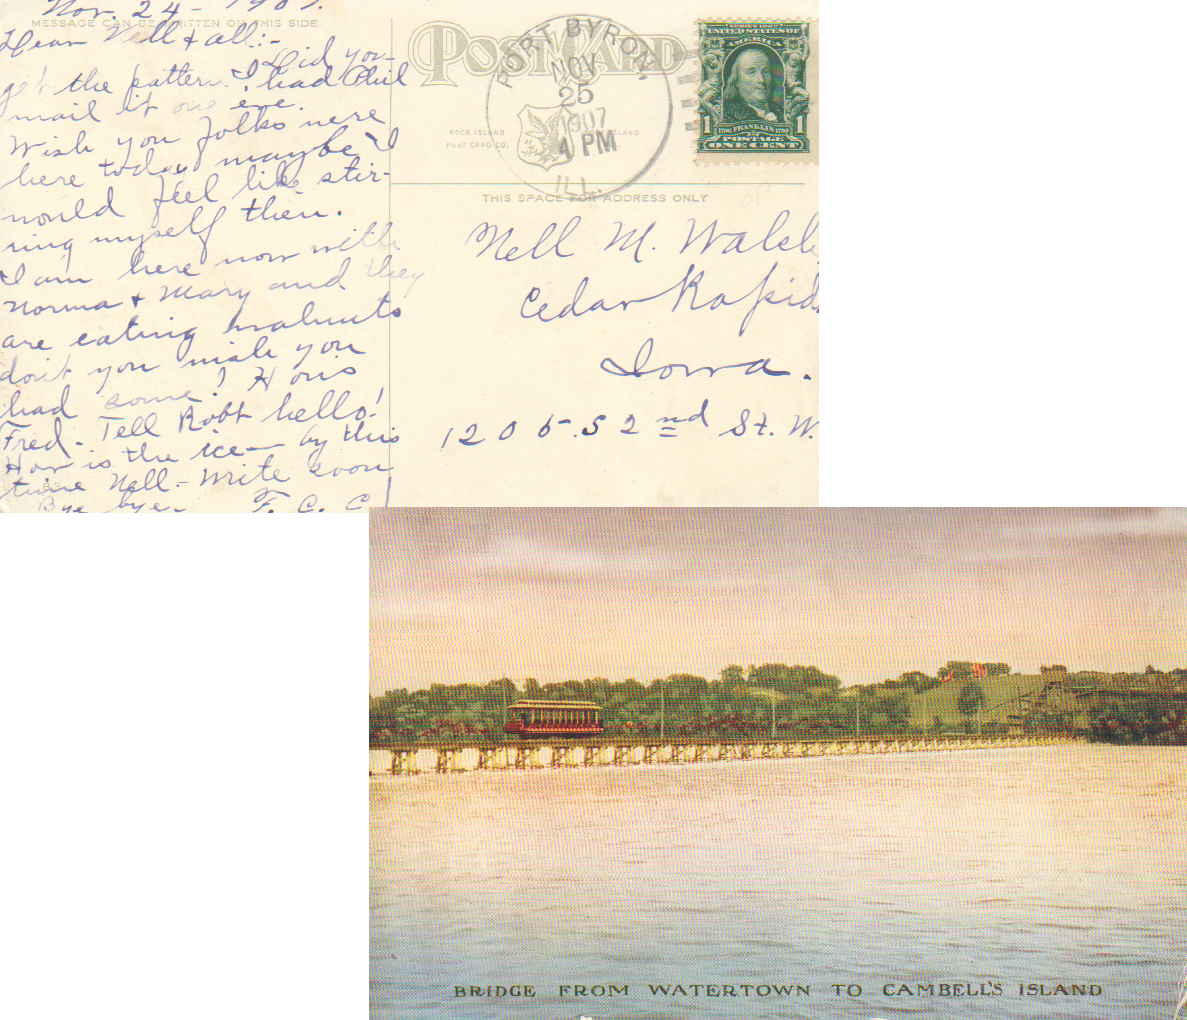 Nov. 24 - 1907.
MESSAGE CAN BE WRITTEN ON THIS SIDE
Dear Nell & all:-
Did you
get the pattern. I had Phil
mail it one eve.
Wish you folks were
here today maybe I
would feel like stir-
ring myself then.
I am here now with
Norma & Mary and they
are eating walnuts
don't you wish you
had some! How's
Fred - Tell Robt hello!
How is the ice - by this
time Nell. - Write soon
Bye bye - F. C. C.
POST CARD
PORT BYRON,
NOV
25
1907
4 PM
ILL.
ROCK ISLAND
POST CARD CO.
ISLAND
SERIES 1902
UNITED STATES OF
AMERICA
1706 FRANKLIN 1790
1 1
POSTAGE
ONE CENT
THIS SPACE FOR ADDRESS ONLY
Nell M. Walsh
Cedar Rapids
Iowa.
1205. S 2nd St. W.
BRIDGE FROM WATERTOWN TO CAMBELL'S ISLAND